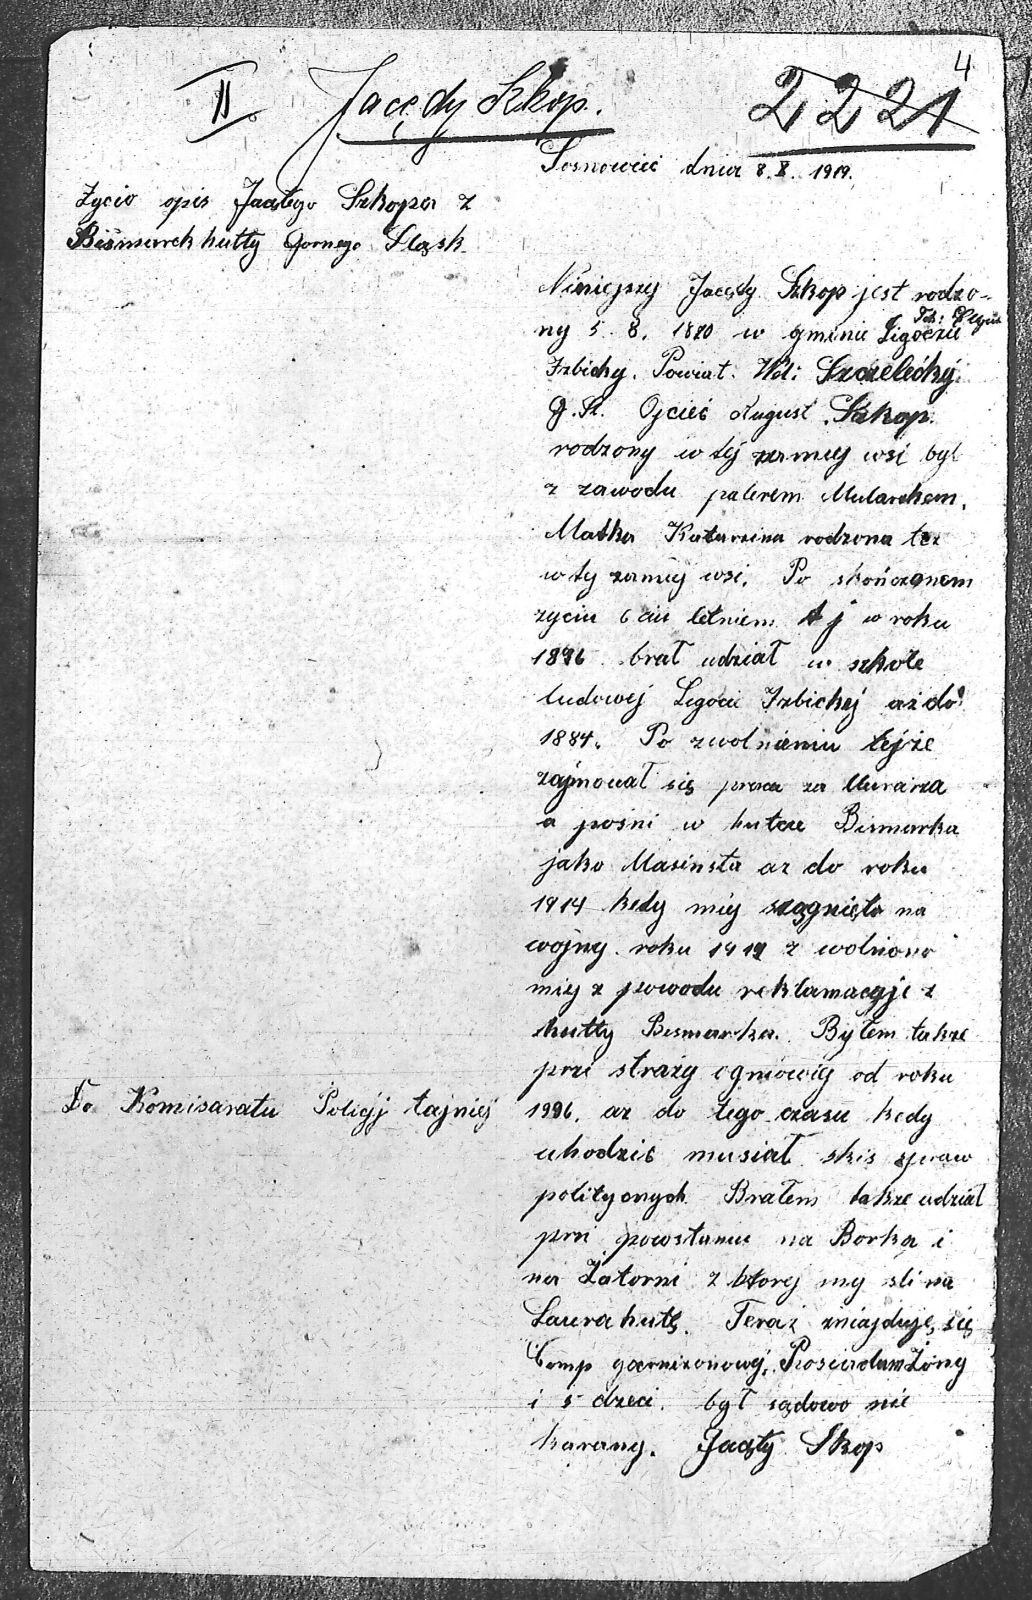 4
II
Jacędy Szkop.
2221
Sosnowieć dnia 8. X. 1919.
Życio opis Jacętego Szkopa z
Bismarckhutty Gornego Sląsk.
Niniejszy Jacędy Szkop jest rodzo-
ny 5. 8. 1870 w gminie Ligoczie
Izbicky. Powiat. Wól: Szczelécký
G. Sl. Ojcieć August Szkop.
rodzony w tej samiej wsi był
z zawodu palerem Mularchem.
Matka Katarzina rodzona tez
w ty samiej wsi. Po skończonem
zyciu 6 ciu letniem t j w roku
1876 brał udział w szkole
ludowej Ligoci Izbickej aż do
1884. Po zwolnieniu tejże
zajmował się praca za Murarza
a pośni w hutcze Bismarka
jako Masinsta az do roku
1914 kedy miej szągnięto na
wojny. roku 1917 zwolniono
miej z powodu reklamacyje z
hutty Bismarka. Byłem takze
przi straży ogniowiej od roku
1996. az do tego czasu kedy
uhodzić musiał skis spraw
politycnych. Brałem takze udział
przi powstaniu na Borka i
na Zatorni z ktorej my sli na
Laurahutę. Teraz zniajduje się
Comp garnizonowej. Posiadam Żony
i 5 dzeci. był sądowo nie
karany. Jacęty Skop
Do Komisaratu Policyj tajniej